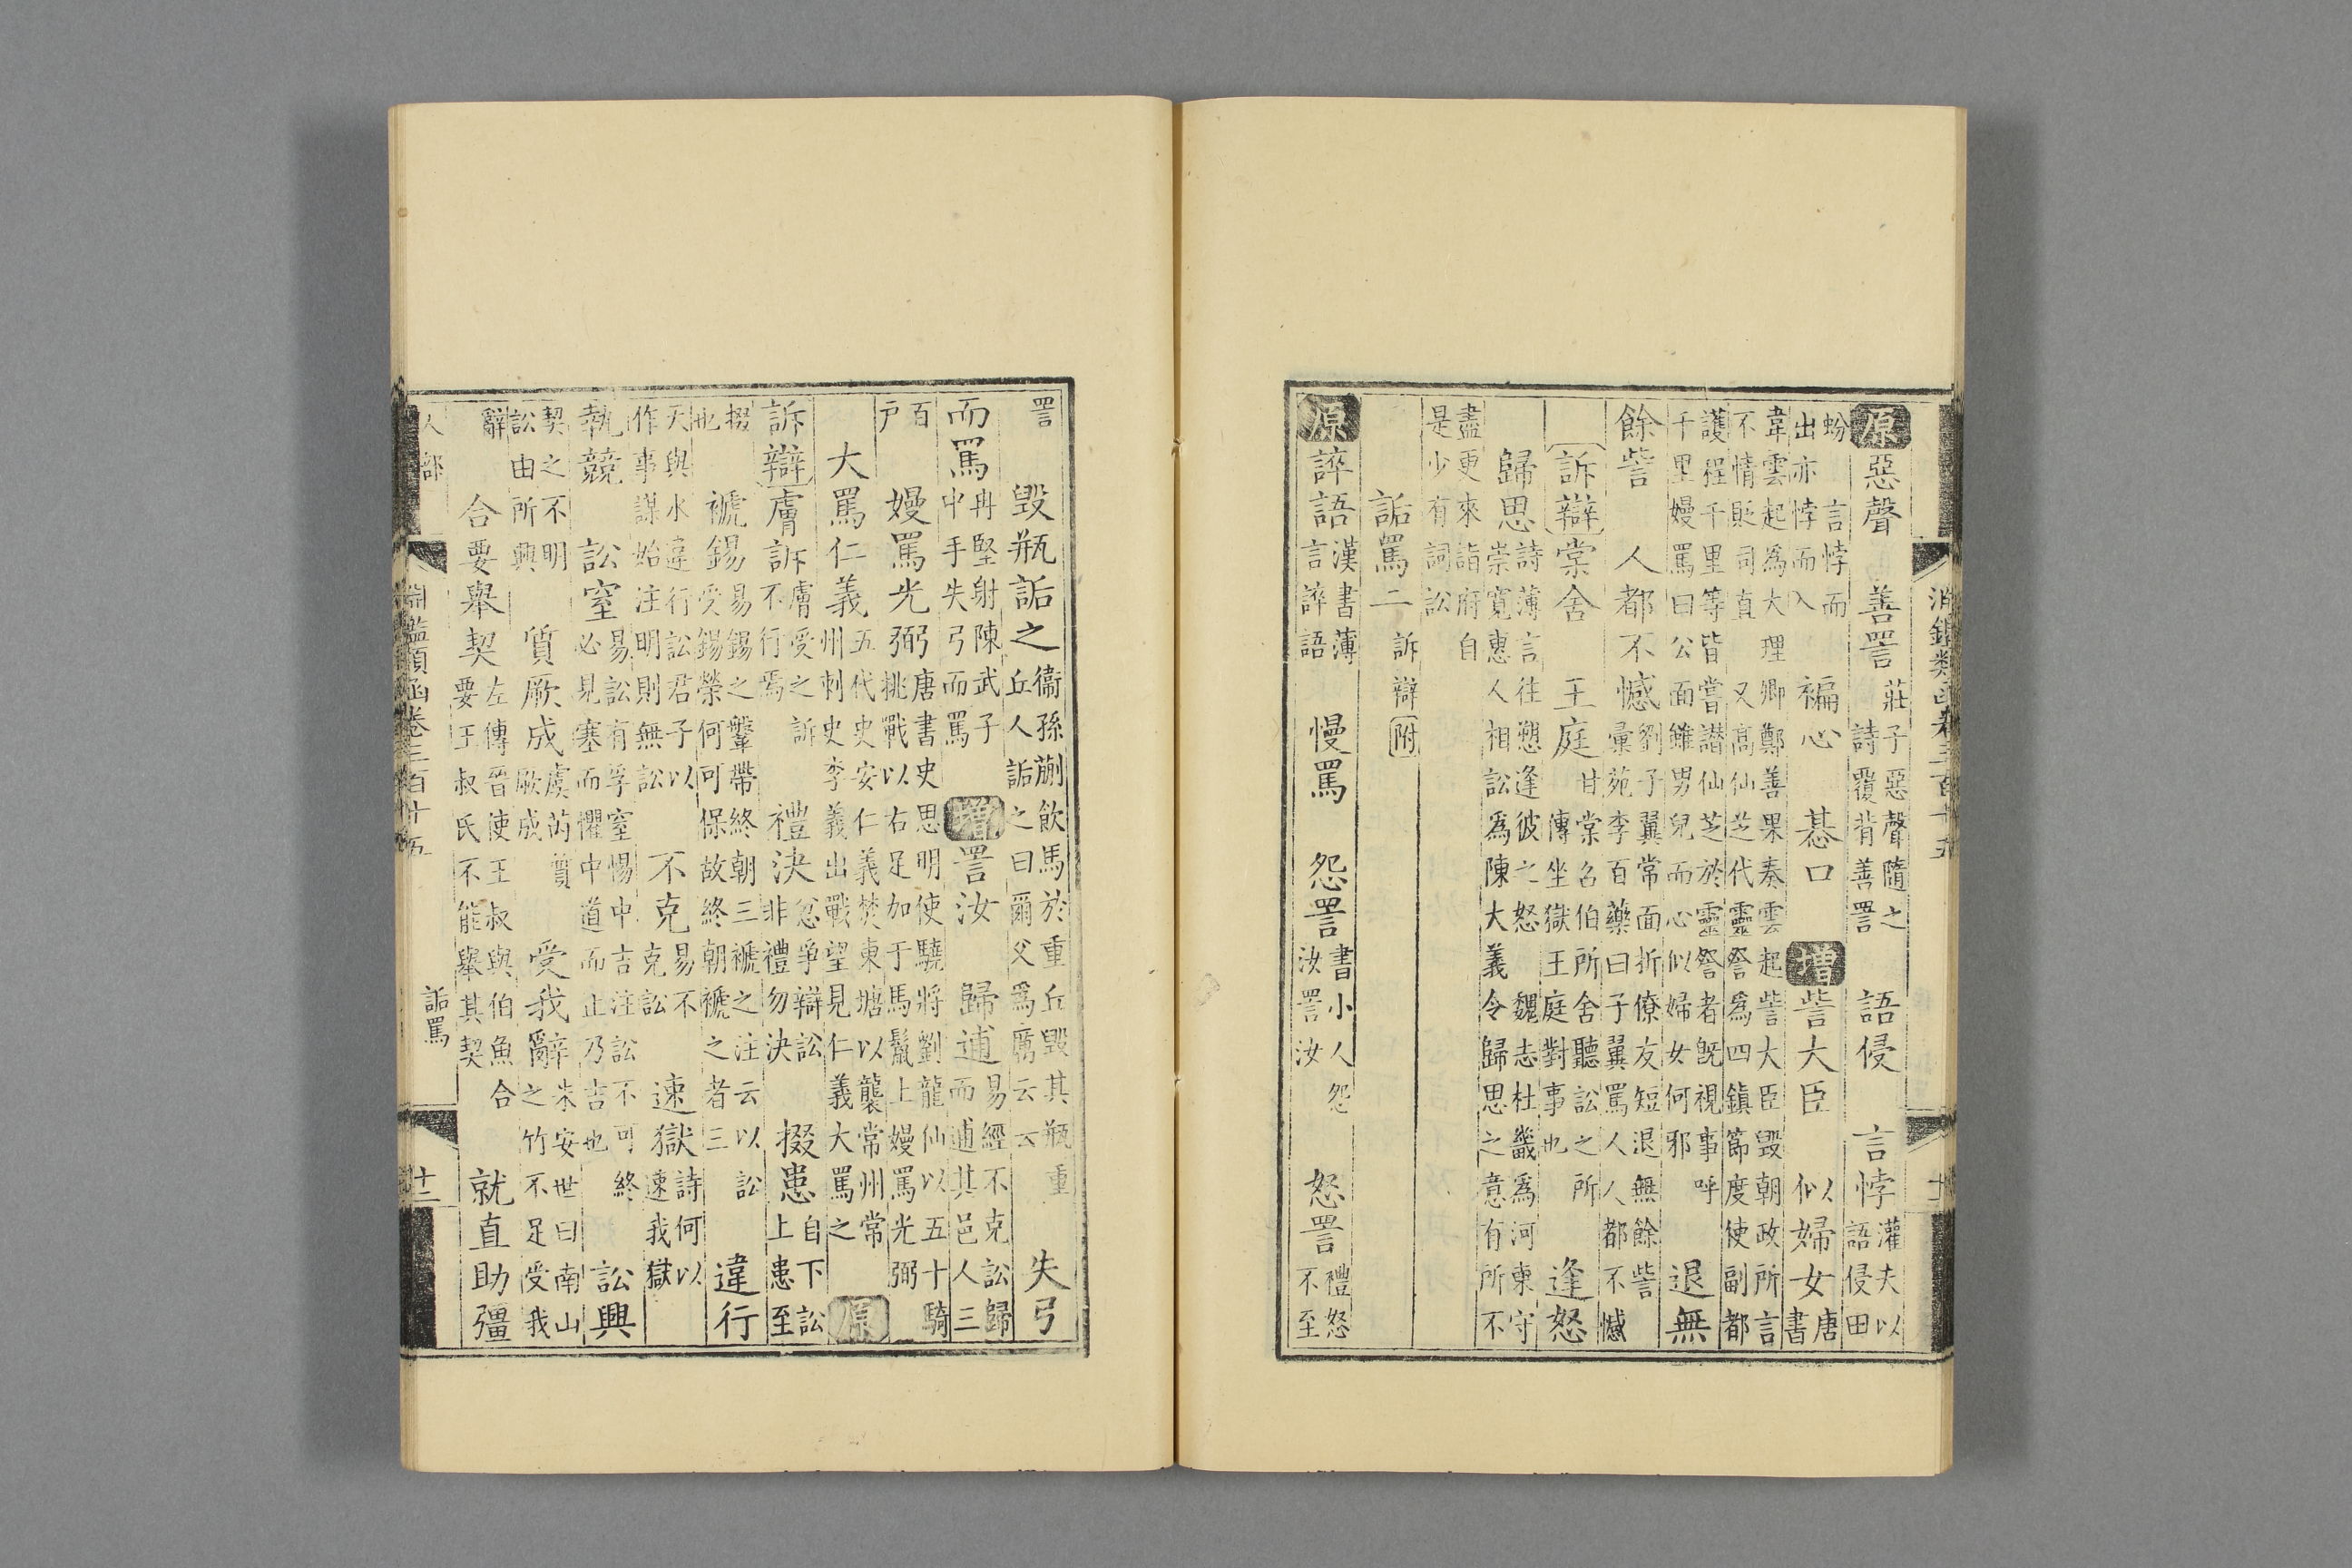 淵鑑類函卷三百十五 十一
原惡聲 善詈莊子惡聲隨之詩覆背善詈 語侵 言悖灌夫以語侵田
蚡 言悖而出亦悖而入 褊心 惎口 增訾大臣 似婦女唐書
韋雲起為大理卿鄭善果奏雲起訾大臣毀朝政所言不情貶司直 又高仙芝代靈詧為四鎮節度使副都
護程千里等皆嘗譖仙芝於靈詧者既視事呼千里嫚罵曰公面雖男兒而心似婦女何邪 退無
餘訾 人都不憾劉子翼常面折僚友短退無餘訾彙苑李百藥曰子翼罵人人都不憾
訴辯棠舍 王庭甘棠召伯所舍聽訟之所傳坐獄王庭對事也 逢怒
歸思詩薄言往愬逢彼之怒 魏志杜畿為河東守崇寬惠人相訟為陳大義令歸思之意有所不
盡更來詣府自是少有詞訟
詬罵二訴辯附
原誶語漢書薄言誶語 慢罵 怨詈書小人怨汝詈汝 怒詈禮怒不至
詈 毀瓶詬之衞孫蒯飲馬於重丘毀其瓶重丘人詬之曰爾父為厲云云 失弓
而罵冉堅射陳武子中手失弓而罵 增詈汝 歸逋易經不克訟歸而逋其邑人三
百戶 嫚罵光弼唐書史思明使驍將劉龍仙以五十騎挑戰以右足加于馬鬣上嫚罵光弼
大罵仁義五代史史安仁義焚東塘以襲常州常州刺史李義出戰望見仁義大罵之 原
訴辯膚訴膚受之訴不行焉 禮決忿爭辯訟非禮勿決 掇患自下訟上患至
掇也 褫錫易錫之鞶帶終朝三褫之注云以訟受錫榮何可保故終朝褫之者三 違行
天與水違行訟君子以作事謀始注明則無訟 不克易不克訟 速獄詩何以速我獄
執競 訟窒易訟有孚窒惕中吉注訟不可終必見塞而懼中道而止乃吉也 訟興
契之不明訟由所興 質厥成虞芮質厥成 受我辭朱安世曰南山之竹不足受我
辭 合要舉契左傳晉使王叔與伯魚合要王叔氏不能舉其契 就直助彊
人部 淵鑑類函卷三百十五 詬罵 十二